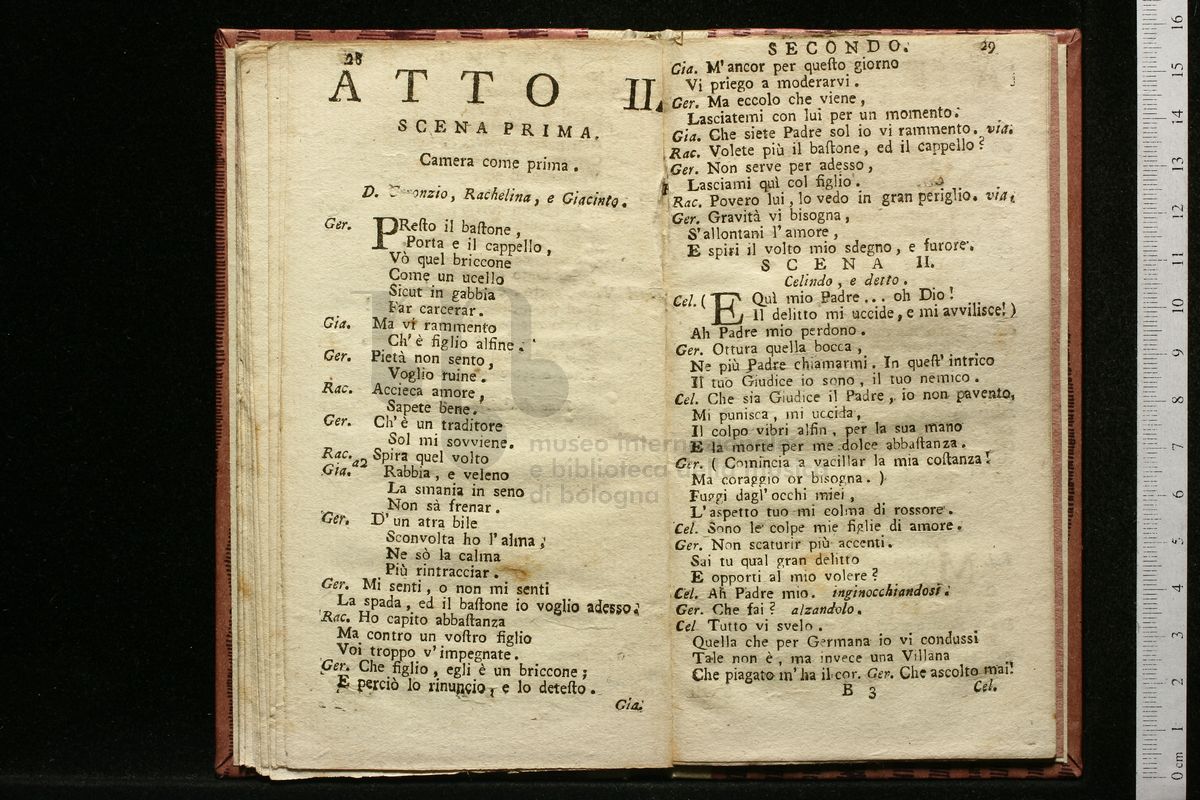 28
ATTO II.
SCENA PRIMA.
Camera come prima.
D. Geronzio, Rachelina, e Giacinto.
Ger. PResto il bastone,
Porta e il cappello,
Vò quel briccone
Come un ucello
Sicut in gabbia
Far carcerar.
Gia. Ma vi rammento
Ch'è figlio alfine.
Ger. Pietà non sento,
Voglio ruine.
Rac. Accieca amore,
Sapete bene.
Ger. Ch'è un traditore
Sol mi sovviene.
Rac. Spira quel volto
Gia. a2 Rabbia, e veleno
La smania in seno
Non sà frenar.
Ger. D'un atra bile
Sconvolta ho l'alma;
Ne sò la calma
Più rintracciar.
Ger. Mi senti, o non mi senti
La spada, ed il bastone io voglio adesso.
Rac. Ho capito abbastanza
Ma contro un vostro figlio
Voi troppo v'impegnate.
Ger. Che figlio, egli è un briccone;
E perciò lo rinuncio, e lo detesto.
Gia.
SECONDO. 29
Gia. M'ancor per questo giorno
Vi priego a moderarvi.
Ger. Ma eccolo che viene,
Lasciatemi con lui per un momento.
Gia. Che siete Padre sol io vi rammento. via.
Rac. Volete più il bastone, ed il cappello?
Ger. Non serve per adesso,
Lasciami quì col figlio.
Rac. Povero lui, lo vedo in gran periglio. via.
Ger. Gravità vi bisogna,
S'allontani l'amore,
E spiri il volto mio sdegno, e furore.
SCENA II.
Celindo, e detto.
Cel. (E Quì mio Padre... oh Dio!
Il delitto mi uccide, e mi avvilisce!)
Ah Padre mio perdono.
Ger. Ottura quella bocca,
Ne più Padre chiamarmi. In quest' intrico
Il tuo Giudice io sono, il tuo nemico.
Cel. Che sia Giudice il Padre, io non pavento,
Mi punisca, mi uccida,
Il colpo vibri alfin, per la sua mano
E la morte per me dolce abbastanza.
Ger. (Comincia a vacillar la mia costanza!
Ma coraggio or bisogna.)
Fuggi dagl'occhi miei,
L'aspetto tuo mi colma di rossore.
Cel. Sono le colpe mie figlie di amore.
Ger. Non scaturir più accenti.
Sai tu qual gran delitto
E opporti al mio volere?
Cel. Ah Padre mio. inginocchiandosi.
Ger. Che fai? alzandolo.
Cel Tutto vi svelo.
Quella che per Germana io vi condussi
Tale non è, ma invece una Villana
Che piagato m'ha il cor. Ger. Che ascolto mai!
B 3 Cel.
museo internazionale
e biblioteca della musica
di bologna
0 cm 1 2 3 4 5 6 7 8 9 10 11 12 13 14 15 16